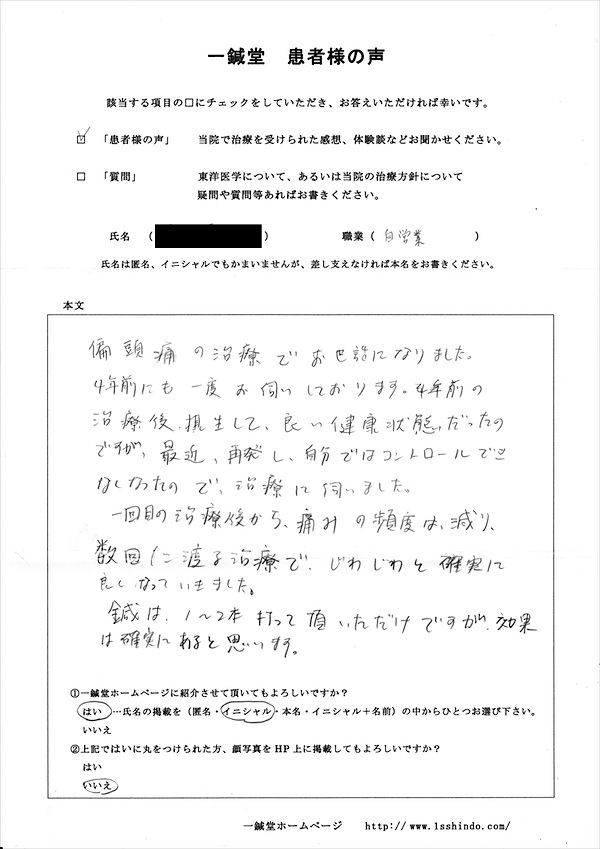 一鍼堂　患者様の声
該当する項目の□にチェックをしていただき、お答えいただければ幸いです。
☑「患者様の声」　当院で治療を受けられた感想、体験談などお聞かせください。
□「質問」　東洋医学について、あるいは当院の治療方針について
疑問や質問等あればお書きください。
氏名　（　　）　職業（　自営業　）
氏名は匿名、イニシャルでもかまいませんが、差し支えなければ本名をお書きください。
本文
偏頭痛の治療でお世話になりました。
4年前にも一度お伺いしております。4年前の
治療後、摂生して、良い健康状態だったの
ですが、最近、再発し、自分ではコントロールでき
なくなったので、治療に伺いました。
一回目の治療後から、痛みの頻度は、減り、
数回に渡る治療で、じわじわと確実に
良くなっていきました。
鍼は、1〜2本打って頂いただけですが、効果
は確実にあると思います。
①一鍼堂ホームページに紹介させて頂いてもよろしいですか？
はい…氏名の掲載を（匿名・イニシャル・本名・イニシャル＋名前）の中からひとつお選び下さい。
いいえ
②上記ではいに丸をつけられた方、顔写真をHP上に掲載してもよろしいですか？
はい
いいえ
一鍼堂ホームページ　http://www.1sshindo.com/